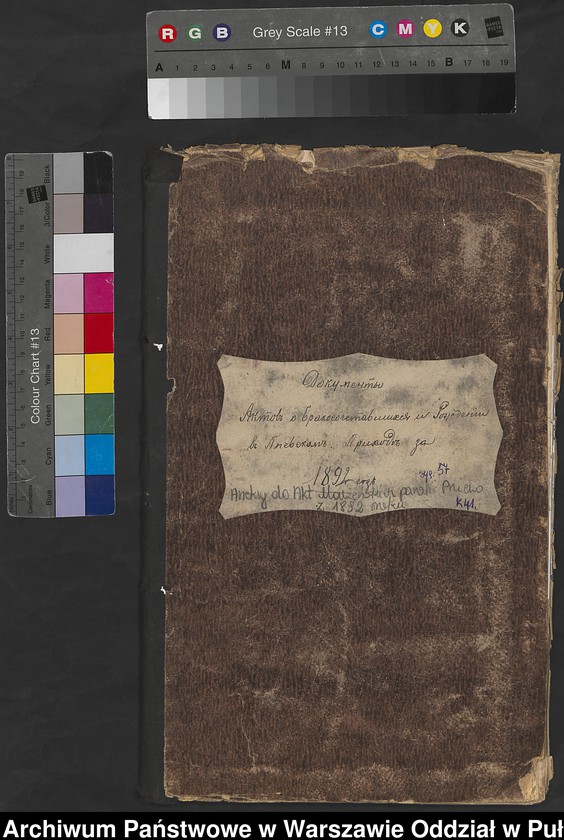 R G B Grey Scale #13 C M Y K
A 1 2 3 4 5 6 M 8 9 10 11 12 13 14 15 B 17 18 19
Colour Chart #13
Black
3/Color
White
Magenta
Red
Yellow
Green
Cyan
Blue
Документы
Актовъ о бракосочетавшихся и Рождении
въ Пневскомъ Приходѣ за
1892 годъ
57
Aneksy do Akt Małżeńskich parafii Pniewo
z 1892 roku K41.
Archiwum Państwowe w Warszawie Oddział w Puł